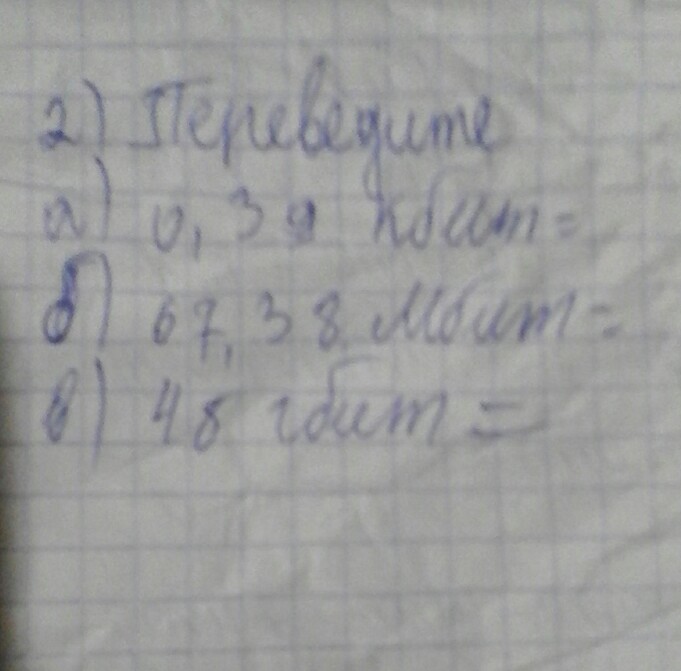 2) Переведите
а) 0,39 кбит=
б) 67,38 Мбит=
в) 48 гбит=